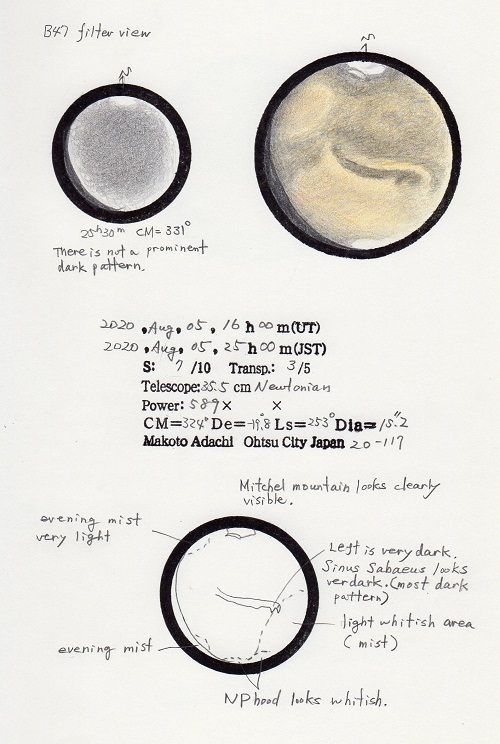 B47 filter view
N
N
25h30m CM=331°
There is not a prominent
dark pattern.
2020, Aug, 05, 16 h 00 m (UT)
2020, Aug, 05, 25 h 00 m (JST)
S: 7 /10 Transp.: 3 /5
Telescope: 35.5 cm Newtonian
Power: 589 × ×
CM=324° De=-19.8° Ls=253° Dia=15.2"
Makoto Adachi Ohtsu City Japan 20-117
Mitchel mountain looks clearly
visible.
evening mist
very light
Left is very dark.
Sinus Sabaeus looks
verdark. (most dark
pattern)
light whitish area
(mist)
evening mist
NPhood looks whitish.